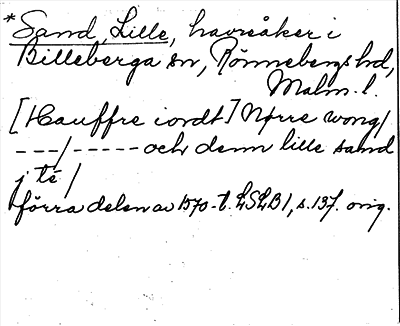 *Sand, Lille, havreåker i
Billeberga sn, Rönnebergs hd,
Malm. l.
[Hauffre iordt] Nørre wong/
---/----- och denn lille sand
j té/
förra delen av 1570-t. LSLB1, s. 137. orig.